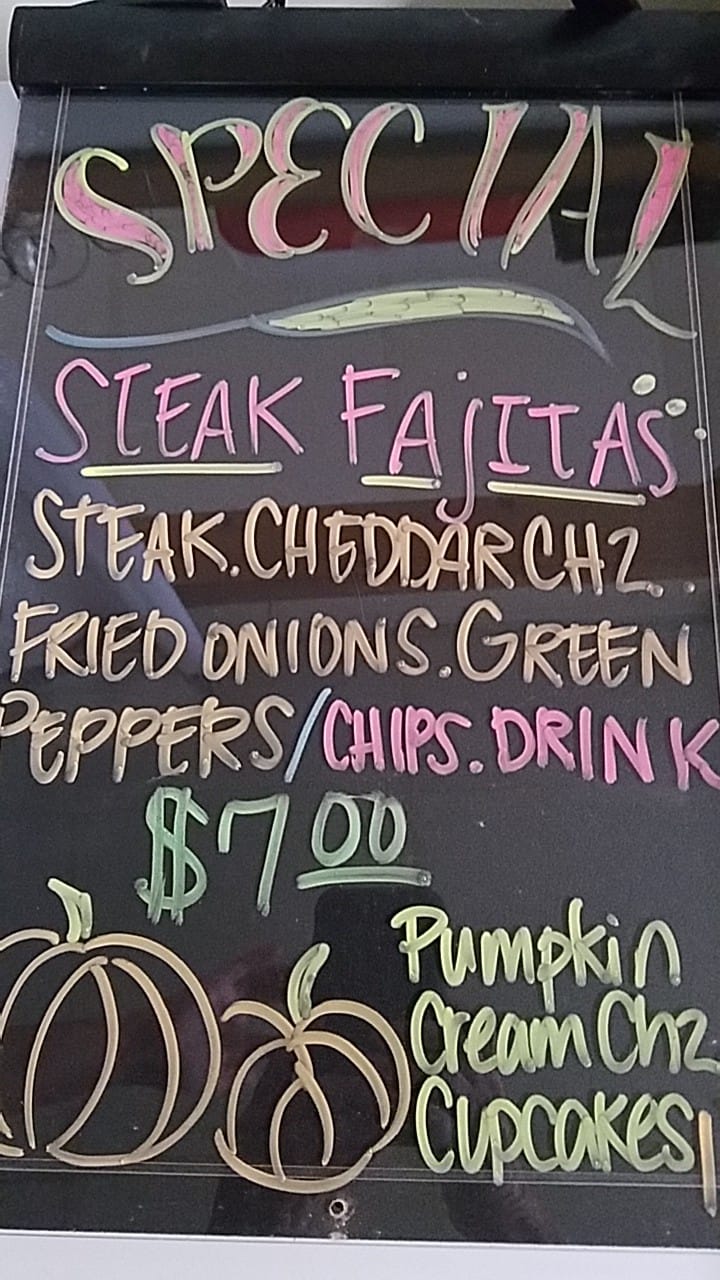 SPECIAL
STEAK FAjITAS
STEAK. CHEDDAR CHZ.
FRIED ONIONS. GREEN
PEPPERS/CHIPS. DRINK
$7.00
Pumpkin
Cream Chz
Cupcakes